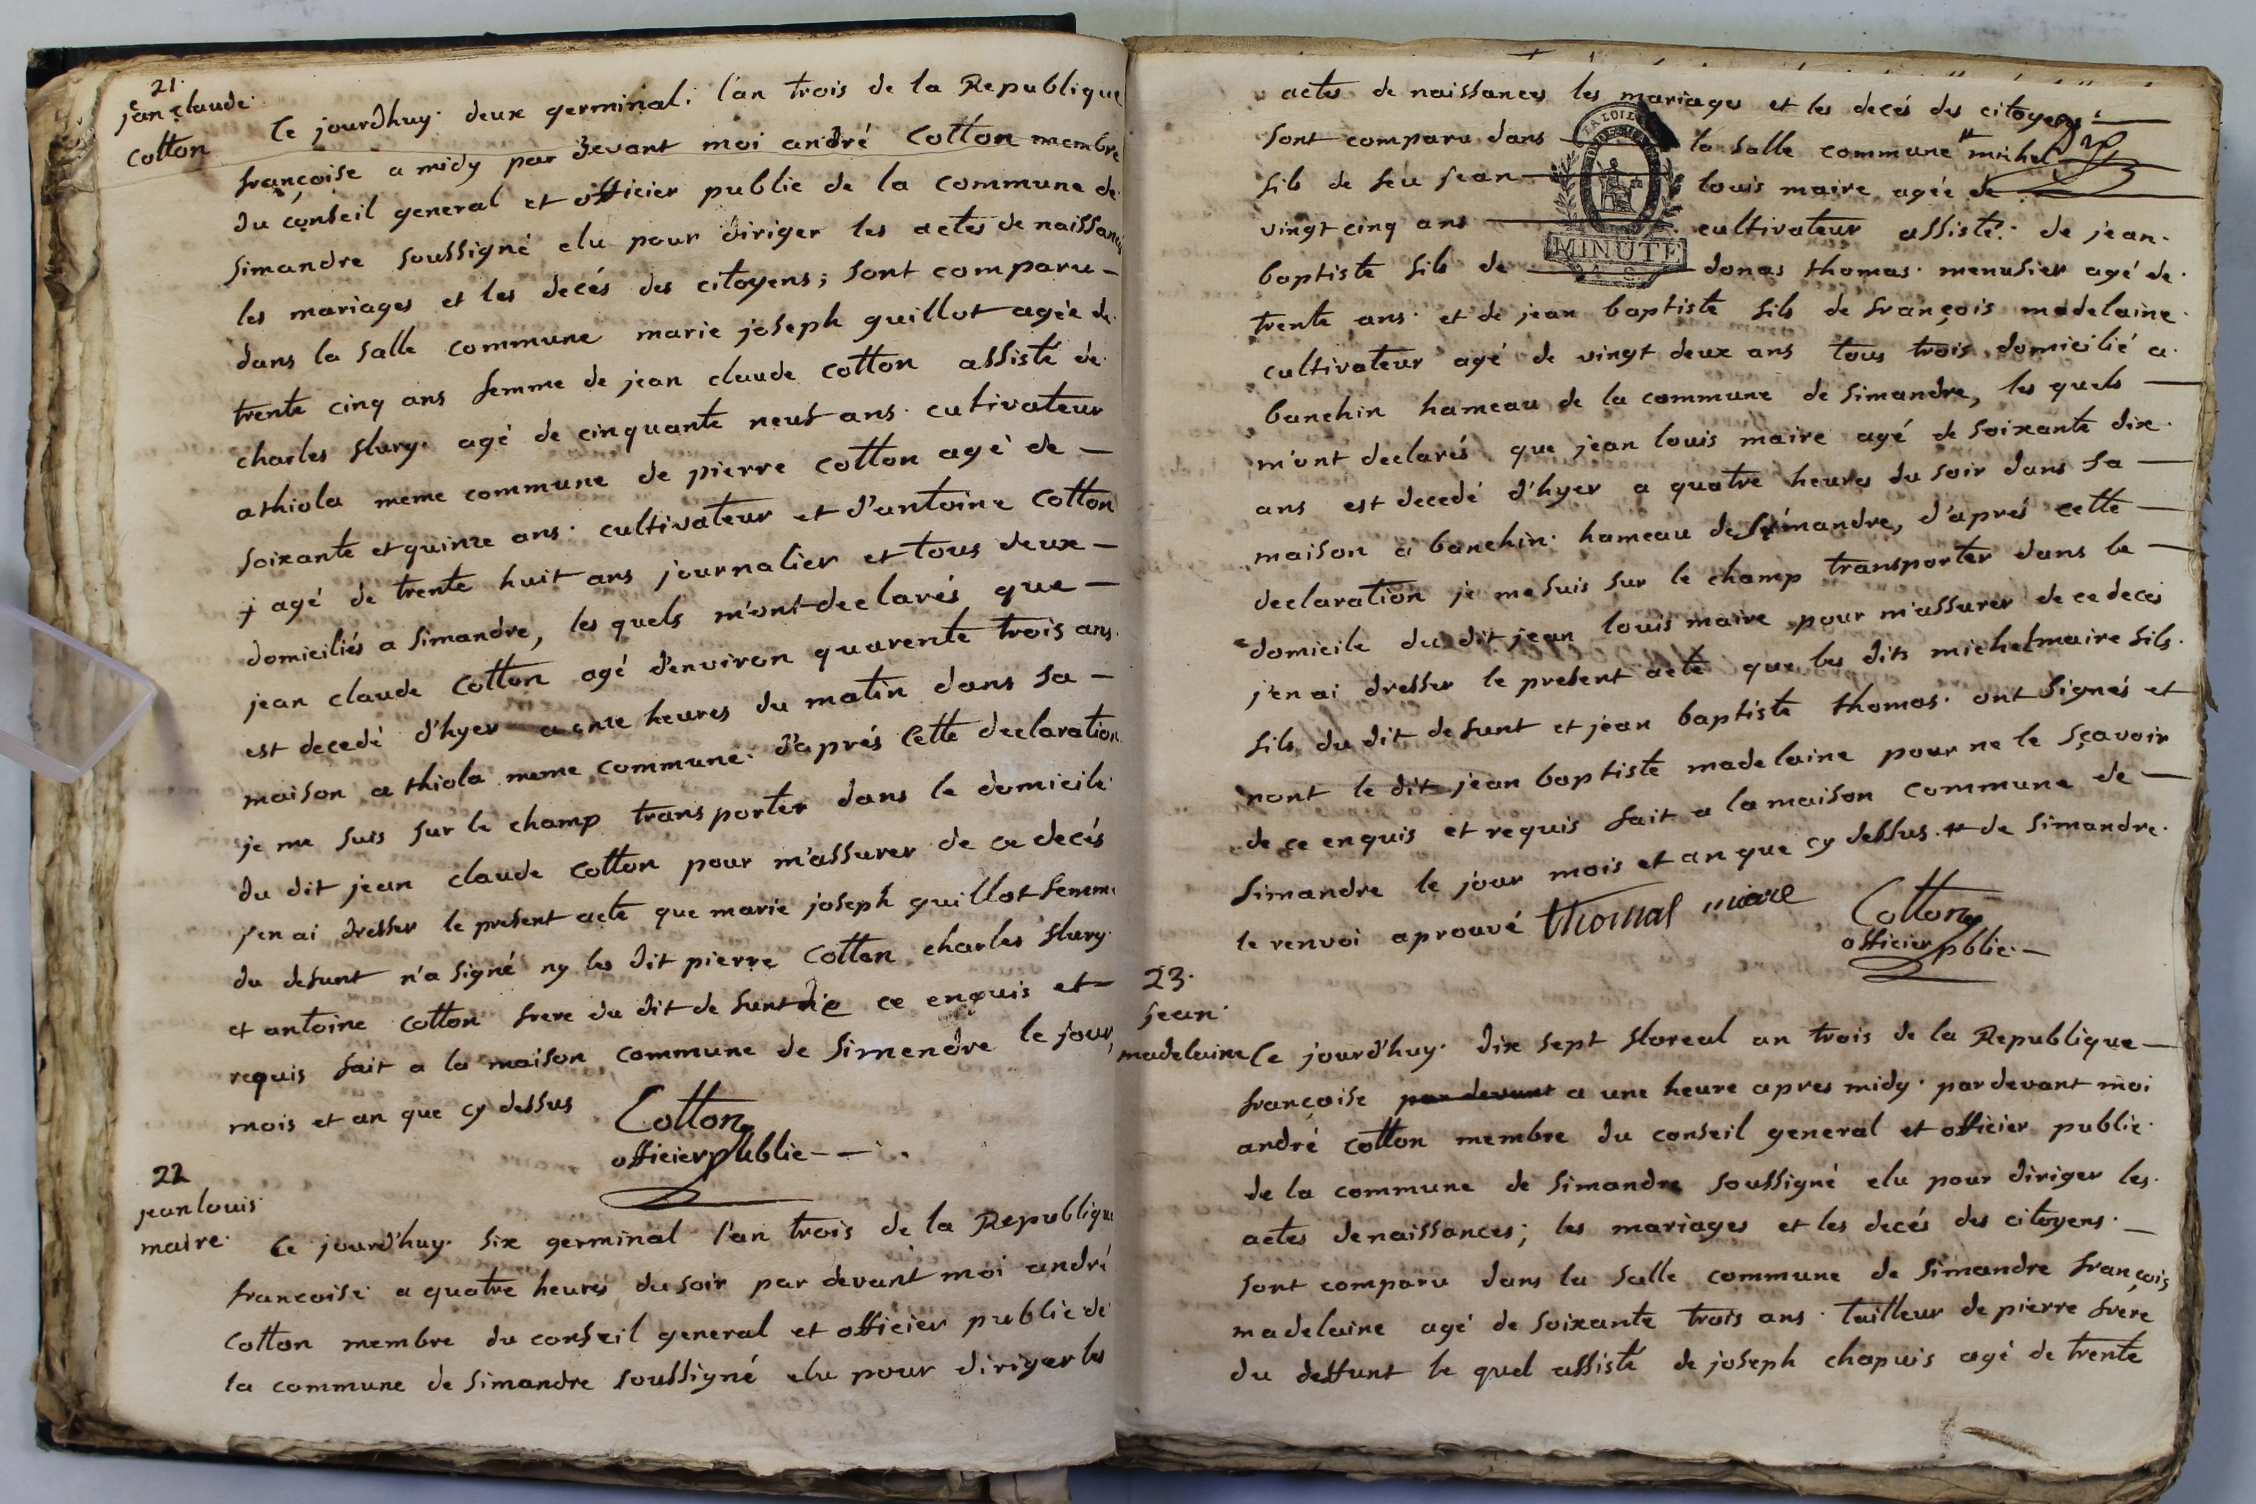 21.
jean claude
Cotton
Ce jourdhuy deux germinal l'an trois de la Republique
françoise a midy par devant moi andré Cotton membre
du conseil general et officier public de la commune de
simandre soussigné elu pour diriger les actes de naissances
les mariages et les decés des citoyens; sont comparu –
dans la salle commune marie joseph guillot agée de
trente cinq ans femme de jean claude Cotton assisté de
charles flury agé de cinquante neuf ans cutivateur
a thiola meme commune de pierre Cotton agé de –
soixante et quinze ans cultivateur et d'antoine Cotton
agé de trente huit ans journalier et tous deux –
domiciliés a simandre, les quels m'ont declarés que –
jean claude Cotton agé d'environ quarente trois ans
est decedé d'hyer a onze heures du matin dans sa –
maison a thiola meme commune. d'aprés Cette declaration
je me suis sur le champ transporter dans le domicile
du dit jean claude Cotton pour m'assurer de ce decés
j'en ai dresser le present acte que marie joseph guillot femme
du defunt n'a signé ny les dit pierre Cotton charles flury
et antoine Cotton frere du dit defunt de ce enquis et –
requis fait a la maison commune de simendre le jour,
mois et an que cy dessus
Cotton
officier public – –
22
jean louis
maire
Ce jourd'huy six germinal l'an trois de la Republique
francoise a quatre heures du soir par devant moi andré
Cotton membre du conseil general et officier public de
la commune de simandre soussigné elu pour diriger les
actes de naissances les mariages et les decés des citoyens –
sont comparu dans la salle commune # michel
fils de feu jean louis maire agée de
vingt cinq ans cultivateur assisté de jean
baptiste fils de donas thomas menusier agé de
trente ans et de jean baptiste fils de françois madelaine
cultivateur agé de vingt deux ans tous trois domicilié a
banchin hameau de la commune de simandre, les quels –
m'ont declarés que jean louis maire agé de soixante dix
ans est decedé d'hyer a quatre heures du soir dans sa –
maison a banchin hameau de Simandre, d'aprés cette –
declaration je me suis sur le champ transporter dans le –
domicile du dit jean louis maire pour m'assurer de ce decés
j'en ai dresser le present acte que les dits michel maire fils
fils du dit defunt et jean baptiste thomas ont signés et
nont le dit jean baptiste madelaine pour ne le sçavoir
de ce enquis et requis fait a la maison commune de –
simandre le jour mois et an que cy dessus # de simandre
le renvoi aprouvé thomas maire Cotton
officier pblic –
23.
jean
madelaine
Ce jourd'huy dix sept floreal an trois de la Republique –
françoise par devant a une heure apres midy par devant moi
andré Cotton membre du conseil general et officier public
de la commune de simandre soussigné elu pour diriger les
actes de naissances; les mariages et les decés des citoyens –
sont comparu dans la salle commune de simandre françois
madelaine agé de soixante trois ans tailleur de pierre frere
du deffunt le quel assisté de joseph chapuis agé de trente
LA LOI
MINUTE